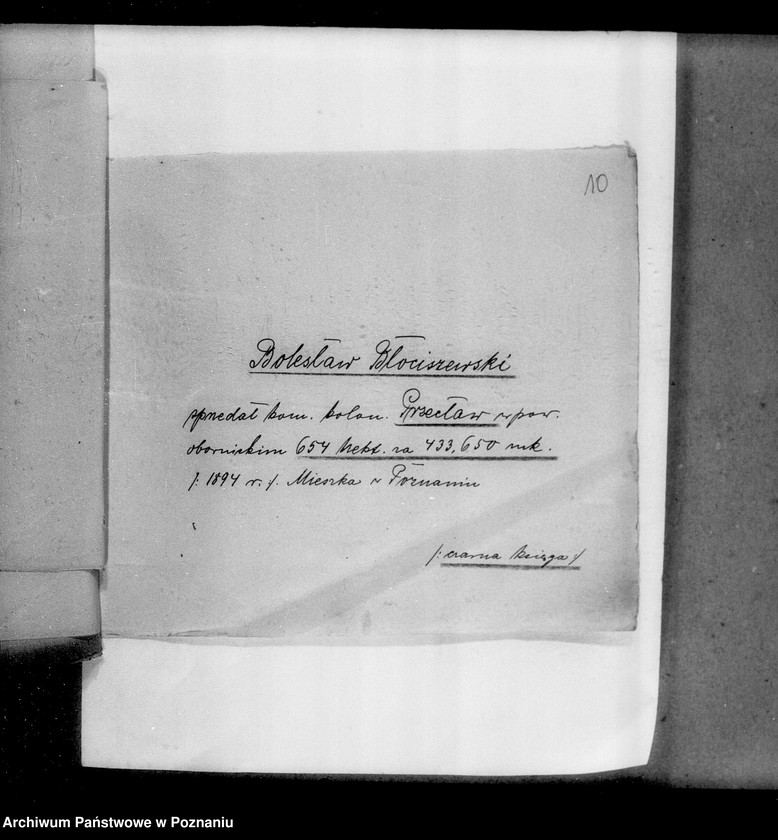 10
Bolesław Błociszewski
sprzedał kom. kolon. Przecław w pow.
obornickim 654 hekt. za 433,650 mk.
/: 1894 r. :/. Mieszka w Poznaniu
/: czarna księga :/
Archiwum Państwowe w Poznaniu